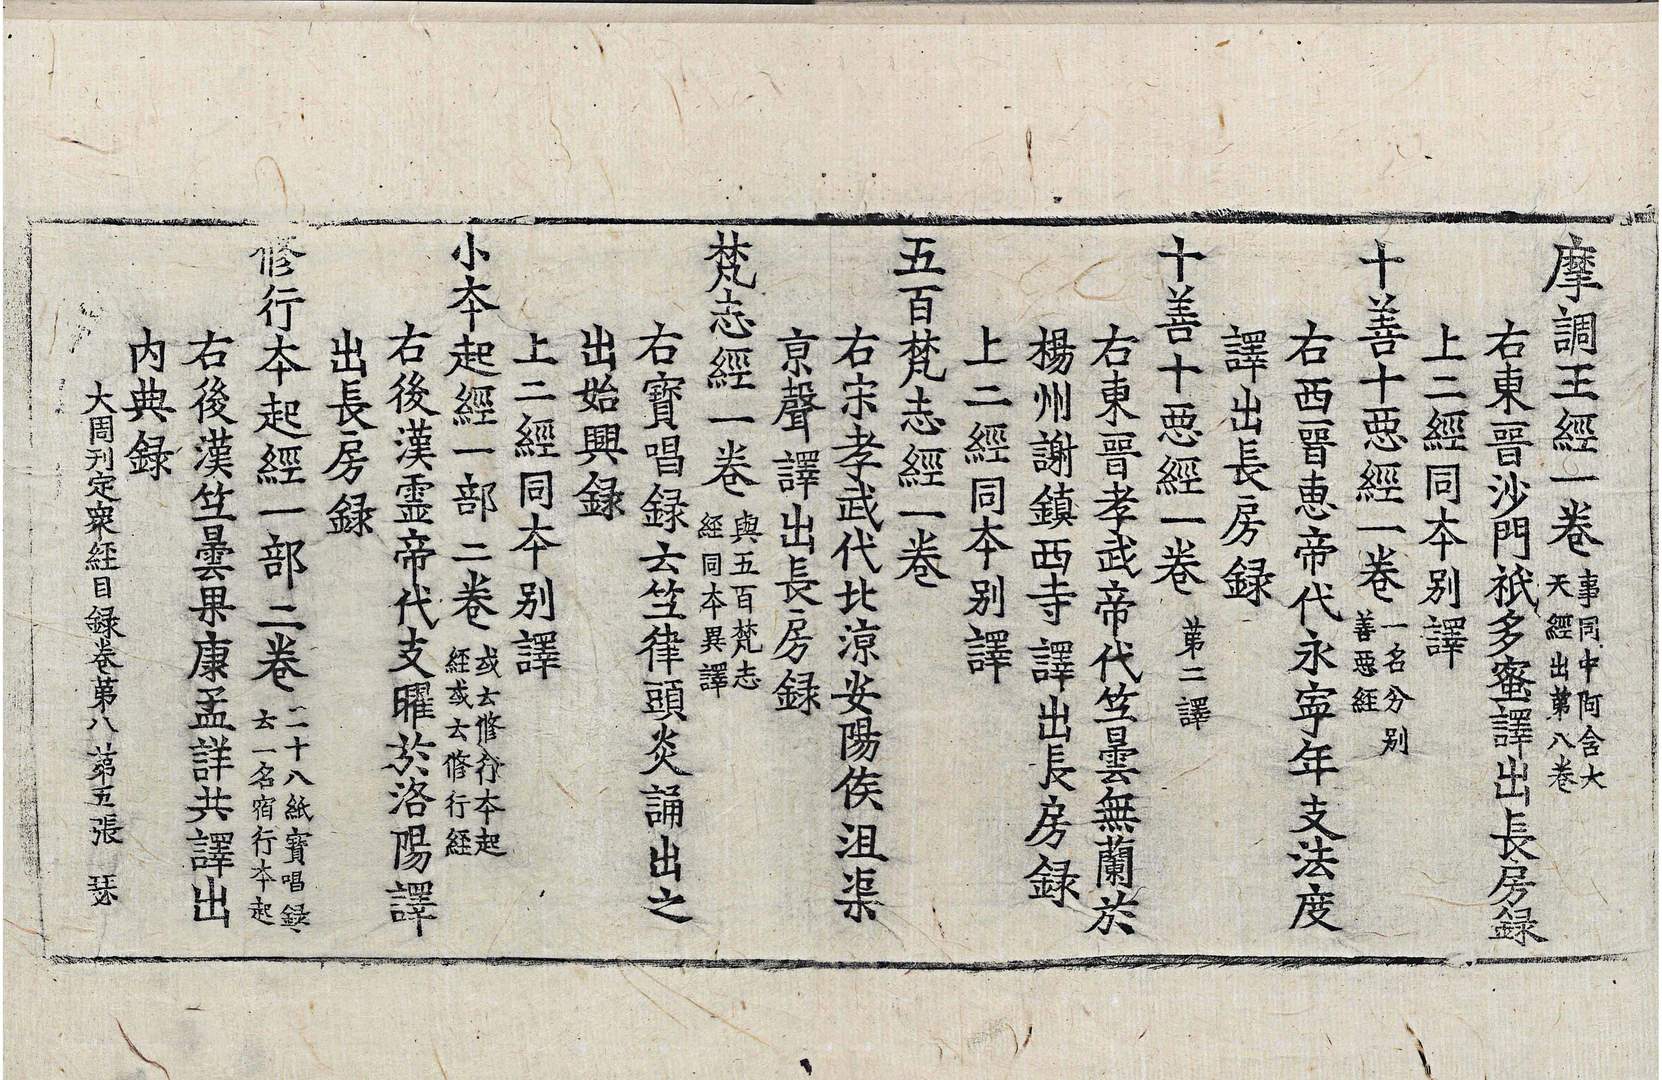 摩調王經一卷 事同中阿含大天經出第八卷
右東晉沙門祇多蜜譯出長房録
上二經同本別譯
十善十惡經一卷 一名分別善惡經
右西晉惠帝代永寧年支法度
譯出長房録
十善十惡經一卷 第二譯
右東晉孝武帝代竺曇無蘭於
楊州謝鎮西寺譯出長房録
上二經同本別譯
五百梵志經一卷
右宋孝武代北涼安陽侯沮渠
京聲譯出長房録
梵志經一卷 與五百梵志經同本異譯
右寶唱録云竺律頭炎誦出之
出始興録
上二經同本別譯
小本起經一部二卷 或云修行本起經或云修行經
右後漢靈帝代支曜於洛陽譯
出長房録
修行本起經一部二卷 二十八紙寶唱録云一名宿行本起
右後漢竺曇果康孟詳共譯出
内典録
大周刊定衆經目録卷第八 第五張 瑟